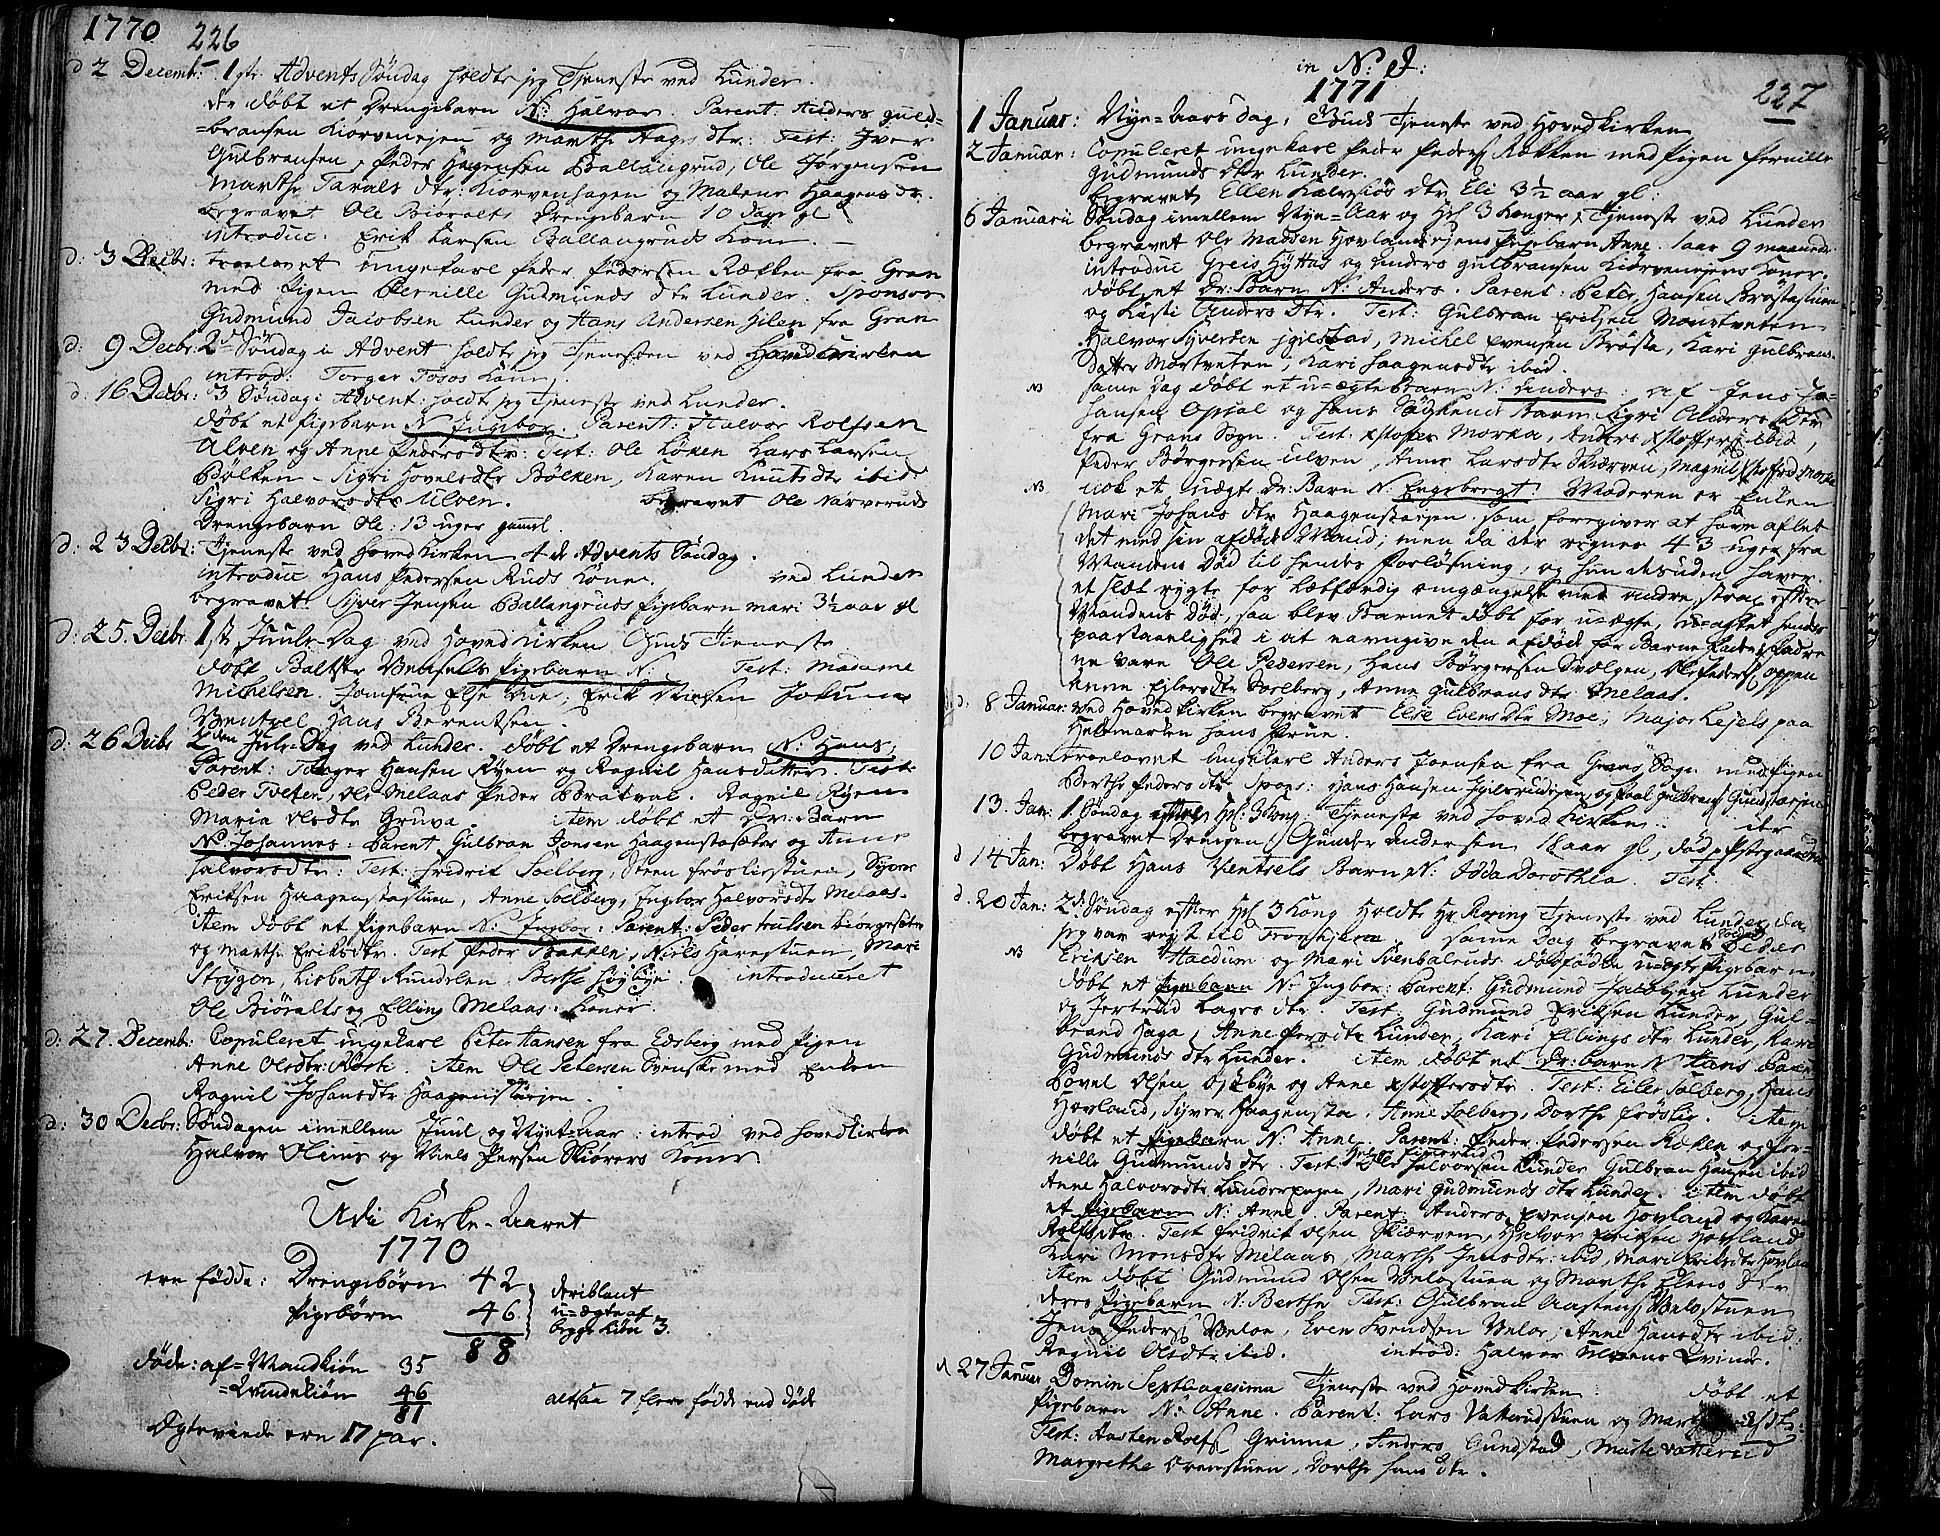 1770 226
d 2 Decemb: 1ste Advents Søndag holdte jeg Tjeneste ved Lunder.
der døbt et Drengebarn N: Halvor. Parent: Anders Guld=
=bransen Kiorvenejen og Marthe Aages dtr: Test: Iver
Gulbransen, Peder Haagensen Ballangrud, Ole Jørgensen
Marthe Tarals dtr. Kiorvenhagen og Malene Haagensdtr.
begravet Ole Biøralts Drengebarn 10 Dage gl
introduc. Erik Larsen Ballangruds Kone. —
d: 3 Decbr: Troelovet ungekarl Peder Pedersen Rækken fra Gran
med Pigen Pernille Gudmunds dtr Lunder. Sponsor
Gudmund Jacobsen Lunder og Hans Andersen Hilen fra Gran
d: 9 Decbr: 2den Søndag i Advent holdte jeg Tjenesten ved Hovedkirken
introd: Torger Tosos Kone.
d. 16 Decbr: 3 Søndag i Advent: holdt jeg Tjeneste ved Lunder.
døbt et Pigebarn N. Ingebor. Parent: Halvor Rolfsen
Ulven og Anne Pedersdtr: Test: Ole Loken Lars Larsen
Bølken - Sigri Hovelsdtr Bølken, Karen Knutsdtr ibid.
Sigri Halvorsdtr Ulven. begravet Ole Narveruds
Drengebarn Ole: 13 uger gamel.
d: 23 Decbr: Tjeneste ved Hovedkirken 4de Advents Søndag.
introduc Hans Pedersen Ruds Kone. ved Lunder
begravet Syver Jensen Ballangruds Pigebarn Mari 3½ aar gl
d: 25. Decbr 1ste Juule-Dag ved Hovedkirken Guds Tieneste
døbt Baltzer Ventsels Pigebarn N: Test: Madame
Michelsen. Jomfrue Else, Erik Jokum
Wentzel, Hans Berentsen.
d: 26 Decbr 2den Jule-Dag ved Lunder. døbt et Drengebarn N: Hans,
Parent: Torger Hansen Ryen og Ragnil Hansdatter. Test:
Peder Tveten, Ole Melaas Peder Bratval. Ragnil Ryen
Maria Olsdtr Gruva. item døbt et Dr: Barn
N. Johannes. Parent Gulbran Jonsen Haagenstasæter og Anne
Halvorsdtr: Test: Fridrik Solberg, Steen Frøslistuen, Syver
Eriksen Haagenstastuen, Anne Solberg, Ingbor Halvorsdtr Melaas.
Item døbt et Pigebarn N: Ingbor: Parent: Peder Trulsen
og Marthe Eriksdtr. Test Peder Bakken, Niels Harestuen, Mari
Strygen, Lisbeth Rundelen Berthe Høybye. introduceret
Ole Biøralts og Elling Melaas: Koner.
d: 27. Decemb: Copuleret ungekarl Peter Hansen fra Edsberg med Pigen
Anne Olsdtr. item Ole Petersen Svenske med Enken
Ragnil Johansdtr Haagenstaejen.
d: 30 Decbr: Søndagen imellem Juul og Nyet=Aar: introd ved Hovedkirken
Halvor Olims og Niels Persen Skiørers Koner.
Udi Kirke-Aaret
1770
ere fødde: Drengebørn 42
Pigebørn 46
88
deriblant
u=ægte af
begge Kiøn 3.
døde: af=Mandkiøn 35
=Qvindekiøn 46
81
altsaa 7 flere fødde end døde
Ægteviede ere 17 par.
in N: J:
1771
227
1 Januar: Nye=Aars dag, Guds Tjeneste ved Hovedkirken
2 Januar: Copuleret ungekarl Peder Peders. Rækken med Pigen Pernille
Gudmunds dtr Lunder.
begravet Ellen dtr Eli 3½ aar gl:
6 Januarii Søndag imellem Nye=Aar og Hel 3 Konger, Tjeneste ved Lunder
begravet Ole Madsen Hovlandsejens Pigebarn Anne 1 aar 9 maaneder
introduc Greis Hyttas og Anders Gulbransen Kiørvenejens Koner.
døbt et Dr: Barn N: Anders. Parent: Peter Hansen Brøstastuen
og Kisti Anders dtr. Test: Gulbran Eriksen Monstveten
Halvor Syversen Igilstad, Michel Evensen Brøsta, Kari Gulbrans-
Datter Morstveten, Kari Haagensdtr ibid.
NB same dag døbt et u=ægte Barn N: Anders: af Jens Jo=
hansen Opsal og hans Barn Sigri Anders Dtr
fra Grans Sogn. Test: Xstopher Morka, Anders Xstoffers. ibid,
Peder Børgersen Ulven, Anne Larsdtr Skiærven, Magnil Xstoffersd. Morka
NB nok et uægte Dr: Barn N. Engebregt: Moderen er Enken
Mari Johans dtr Haagenstaejen som foregiver at have aflet
det med sin afdøde Mand; men da der regnes 43 uger fra
Mandens Død til hendes forløsning, og hun desuden haver
et slæt rygte for letfærdig omgængelse med andre strax efter
Mandens Død, saa blev Barnet døbt for u=ægte, u=agtet hendes
paastaaelighed i at navngive den afdøde for Barne Fader. Fadre
ne vare Ole Pedersen, Hans Børgersen Svælgen, Ole Peders. Oppen
Anne Eilersdtr Solberg, Anne Gulbrans dtr Melaas.
d. 8 Januar: ved Hovedkirken begravet Else Evensdtr Moe, Major Lejels paa
Hedemarken hans Frue.
10 Jan: troelovet ungkarl Anders Joensen fra Grans Sogn med Pigen
Berthe Peders dtr. Spons: Hans Hansen og Poul Gulbrans. Gundstaejen
13. Jan: 1. Søndag efter Hel: 3 Kong: Tjeneste ved Hovedkirken: der
begravet Drengen Gunder Andersen aar gl,
d 14 Jan: Døbt Hans Ventsels Barn, N: Dorothea. Test
d. 20 Jan: 2den Søndag efter Hel 3 Kong Holdte Hr Rosing Tjeneste ved Lunder, da
jeg var rejst til Tronhjem. same Dag begravet Soldat Peder
NB Eriksen og Mari Svenbalruds dødfødde u=ægte Pigebarn.
døbt et Pigebarn N: Ingbor: Parent: Gudmund Jacobsen Lunder
og Jertrud Lagesdtr. Test: Gudmund Eriksen Lunder, Gul-
brand Haga, Anne Persdtr Lunder, Kari Ellings dtr Lunder, Kari
Gudmunds dtr Lunder. item døbt et Dr: barn N Hans Paren
Hovel Olsen Opsbye og Anne Xstoffersdtr. Test: Eiler Solberg, Hans
Hovland, Syver Haagensta, Anne Solberg, Dorthe Frøslie. item
døbt et Pigebarn N: Anne. Parent: Peder Pedersen Ræken og Per-
nille Gudmunds dtr. Test: Halvorsen Lunder Gulbran Hansen ibid
Anne Halvorsdtr Lunderhagen, Mari Gudmunds dtr Lunder. item døbt
et Pigebarn N: Anne. Parent: Anders Evensen Hovland og Karen
Rolfsdtr. Test Fridrik Olsen Skiærven, Halvor Eriksen Hovland
Kari Monsdtr Melaas, Marthe Jensdtr ibid, Mari Eriksdtr Hovland
item døbt Gudmund Olsen Veloestuen og Marthe Elens dtr
deres Pigebarn N: Berthe Test: Gulbran Aastens. Veloestuen
Jens Peders. Veloe, Even Svendsen Veloe, Anne Hansdtr ibid.
Ragnil Olsdtr ibid. introd: Halvor Mo Qvinde.
d 27 Januar Domin Septuagesima Tjeneste ved Hovedkirken: døbt et
Pigebarn N: Anne. Parent: Lars Vatterudstuen og Marthe
Test: Aasten Rolfs. Grinna, Anders Gundstad, Marte Vatterud
Margrethe Ovenstuen, Dorthe Hans dtr.